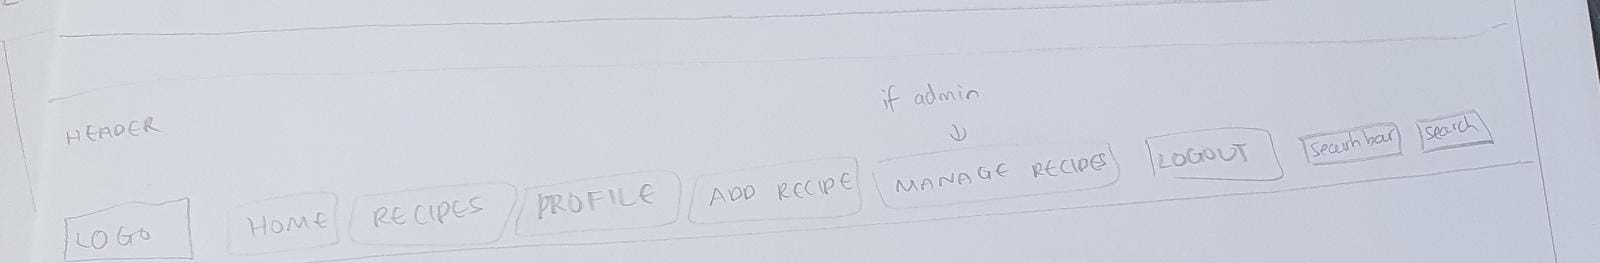 if admin
HEADER
LOGO HOME RECIPES PROFILE ADD RECIPE MANAGE RECIPES LOGOUT Search bar Search